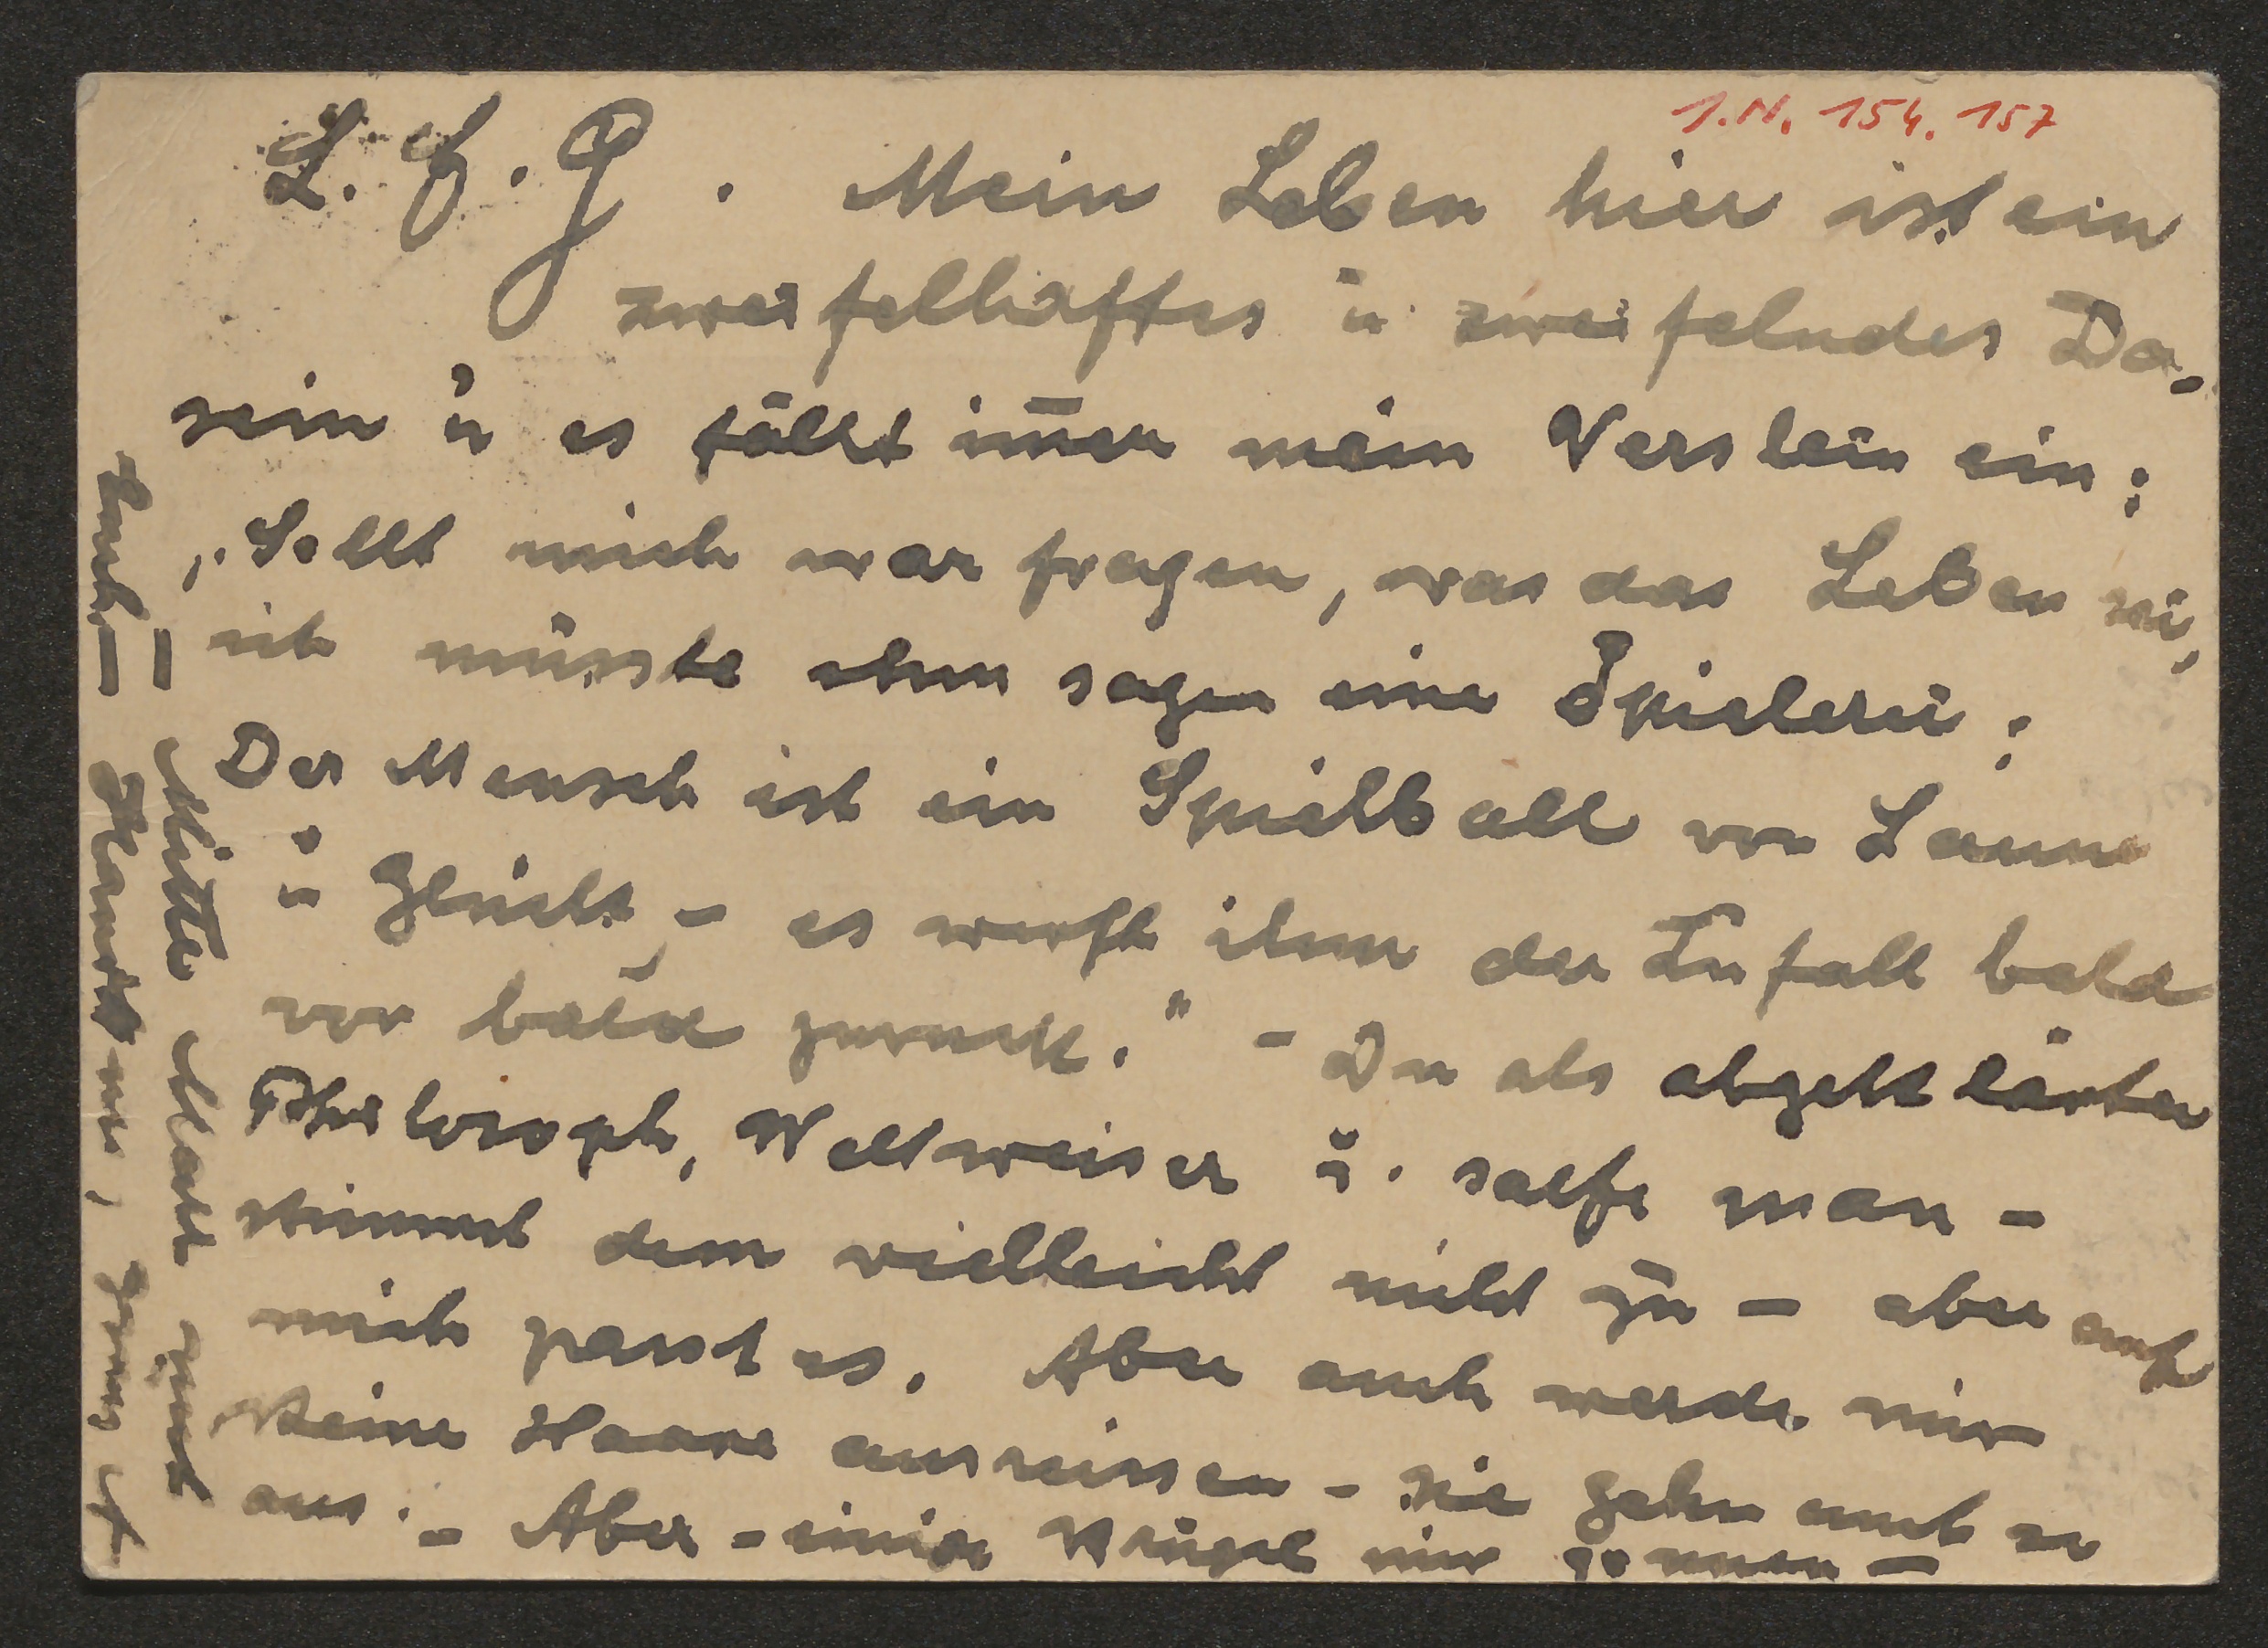 J.N. 154.157
L. F. G. Mein Leben hier ist ein
zweifelhaftes u. zweifelndes Da-
sein u es fällt im̄er mein Verslein ein:
„Sollt mich wer fragen, was das Leben sei,
ich müsste ihm sagen eine Spielerei:
Der Mensch ist ein Spielball von Laune
u Glück, - es wirft ihn der Zufall bald
vor bald zurück." - Du als abgeklärter
Philosoph, Weltweiser u. self man -
stimmst dem vielleicht nicht zu - aber auf
mich passt es. Aber auch werde mir
keine Haare ausreissen - sie gehn auch so
aus. - Aber - einige Krügel mir gönnen -
Mitte März